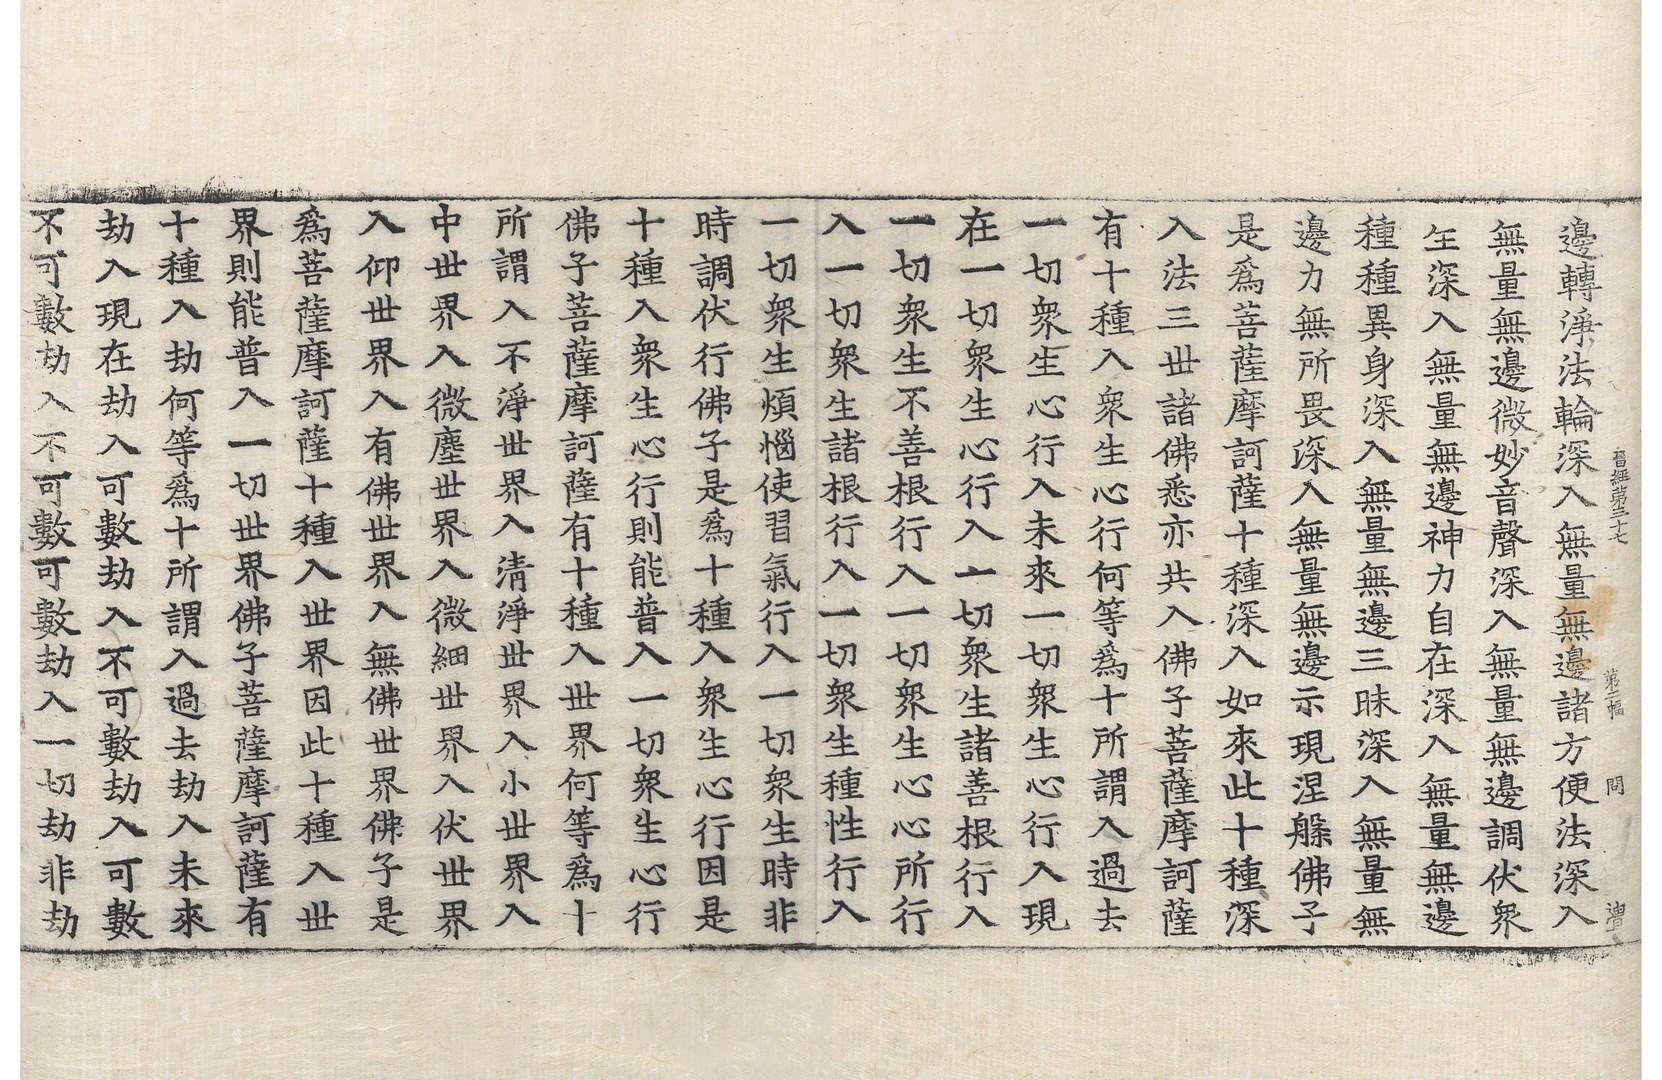 晉經第三十七 第二幅 問
邊轉淨法輪深入無量無邊諸方便法深入
無量無邊微妙音聲深入無量無邊調伏衆
生深入無量無邊神力自在深入無量無邊
種種異身深入無量無邊三昧深入無量無
邊力無所畏深入無量無邊示現涅槃佛子
是爲菩薩摩訶薩十種深入如來此十種深
入法三世諸佛悉亦共入佛子菩薩摩訶薩
有十種入衆生心行何等爲十所謂入過去
一切衆生心行入未來一切衆生心行入現
在一切衆生心行入一切衆生諸善根行入
一切衆生不善根行入一切衆生心心所行
入一切衆生諸根行入一切衆生種性行入
一切衆生煩惱使習氣行入一切衆生時非
時調伏行佛子是爲十種入衆生心行因是
十種入衆生心行則能普入一切衆生心行
佛子菩薩摩訶薩有十種入世界何等爲十
所謂入不淨世界入清淨世界入小世界入
中世界入微塵世界入微細世界入伏世界
入仰世界入有佛世界入無佛世界佛子是
爲菩薩摩訶薩十種入世界因此十種入世
界則能普入一切世界佛子菩薩摩訶薩有
十種入劫何等爲十所謂入過去劫入未來
劫入現在劫入可數劫入不可數劫入可數
不可數劫入不可數可數劫入一切劫非劫